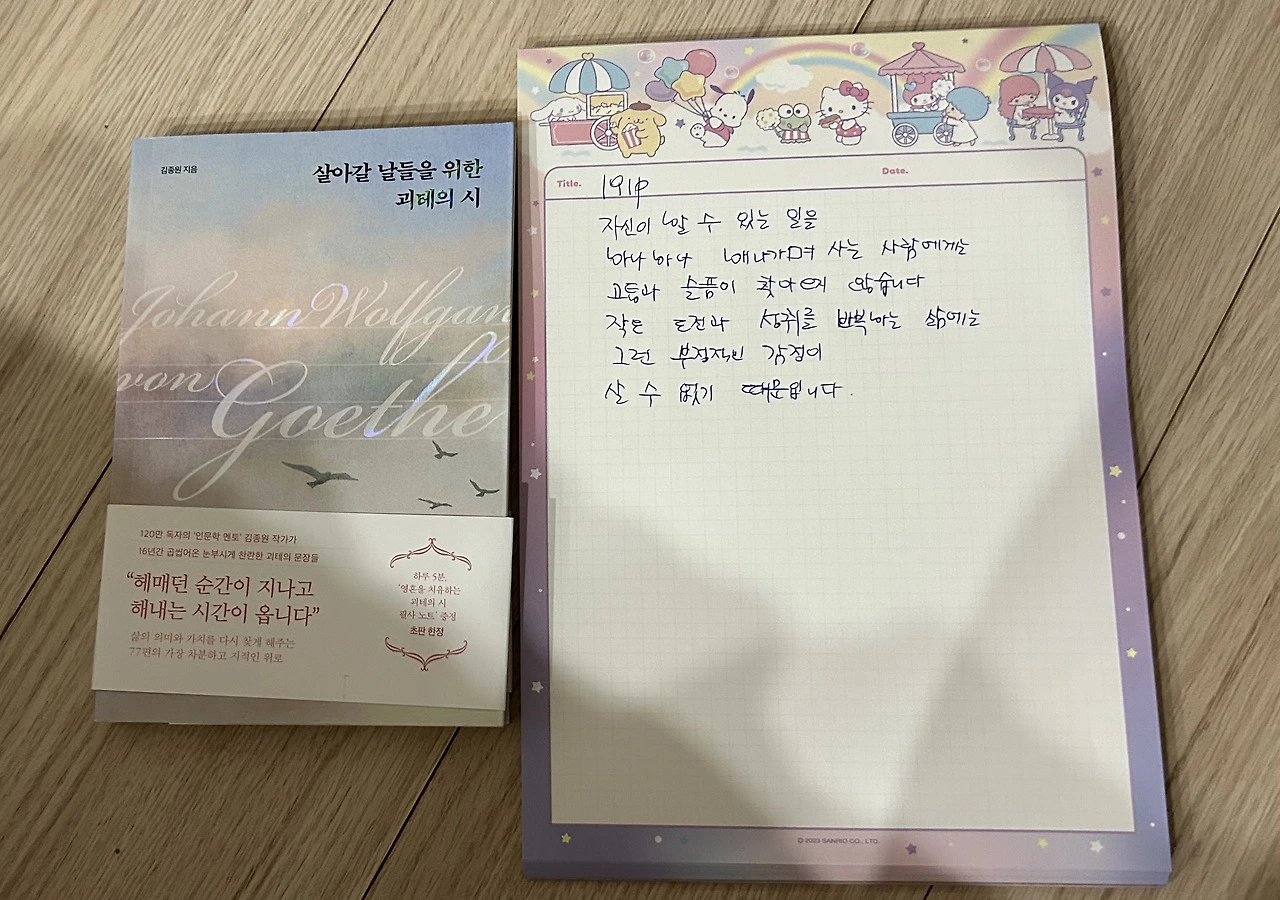 김종원 지음
살아갈 날들을 위한
괴테의 시
Johann Wolfgang
von
Goethe
120만 독자의 '인문학 멘토' 김종원 작가가
16년간 곱씹어온 눈부시게 찬란한 괴테의 문장들
“헤매던 순간이 지나고
해내는 시간이 옵니다”
삶의 의미와 가치를 다시 찾게 해주는
77편의 가장 차분하고 지적인 위로
하루 5분,
'영혼을 치유하는
괴테의 시
필사 노트' 증정
초판 한정
Title.
191p
Date.
자신이 할 수 있는 일을
하나하나 해나가며 사는 사람에게는
고통과 슬픔이 찾아오지 않습니다
작은 도전과 성취를 반복하는 삶에는
그런 부정적인 감정이
살 수 없기 때문입니다.
© 2023 SANRIO CO., LTD.